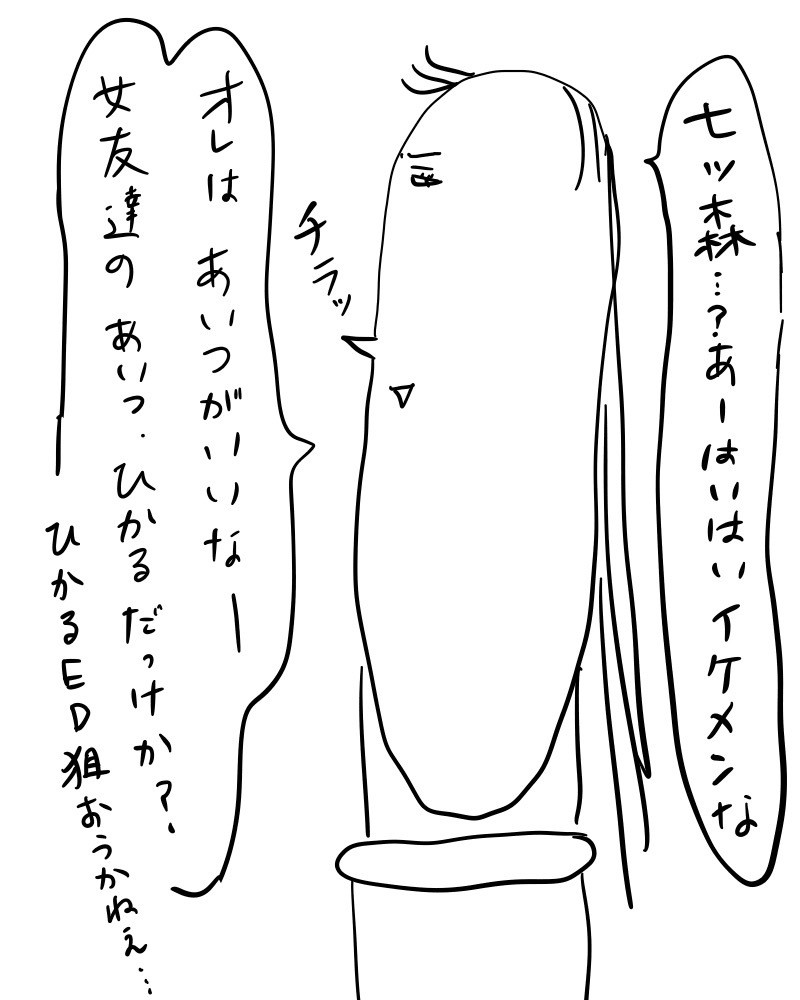 七ッ森…?あーはいはいイケメンな
チラッ
オレは あいつがいいなー
女友達の あいつ.ひかるだっけか?
ひかるED狙おうかねえ…